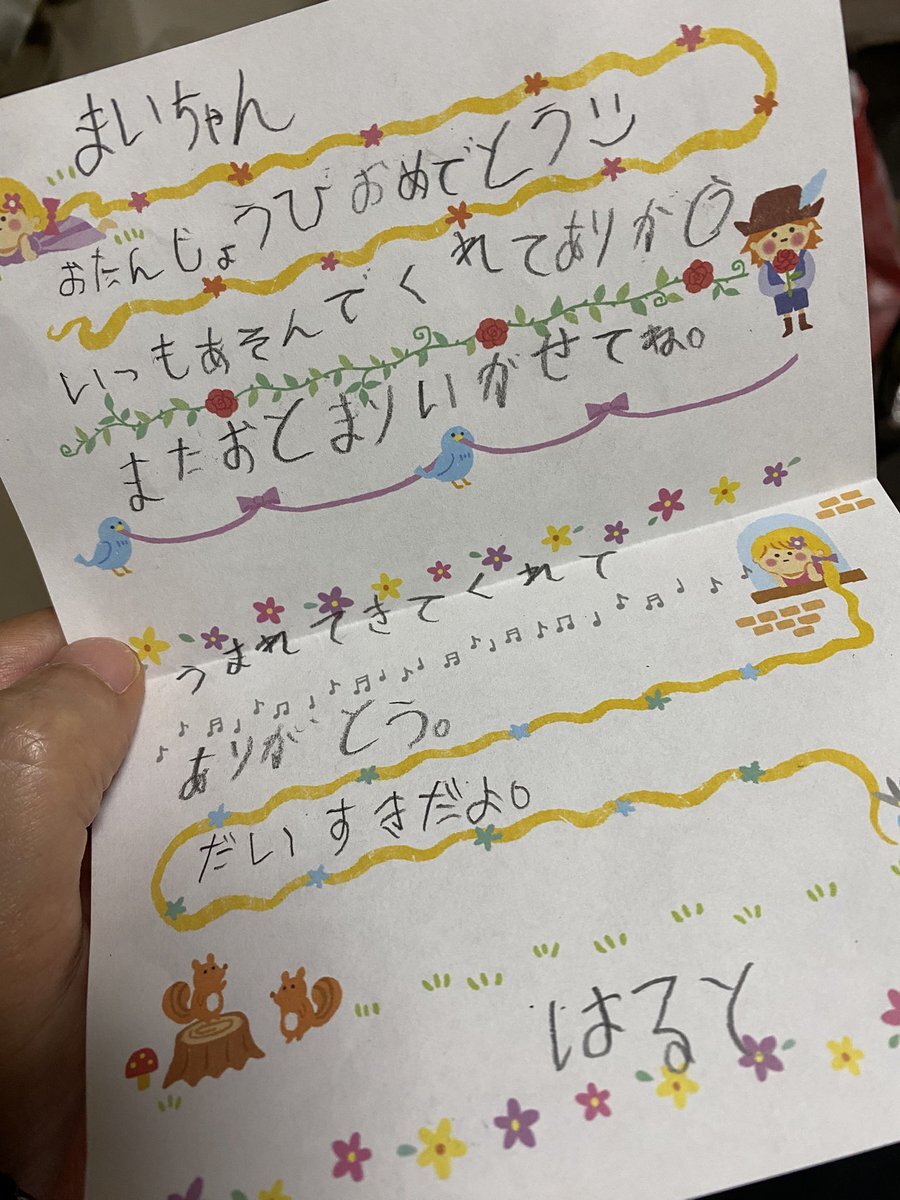 まいちゃん
おたんじょうびおめでとう
いつもあそんでくれてありか
またおとまりいがせてね。
うまれてきてくれて
ありがとう。
だいすきだよ。
はると